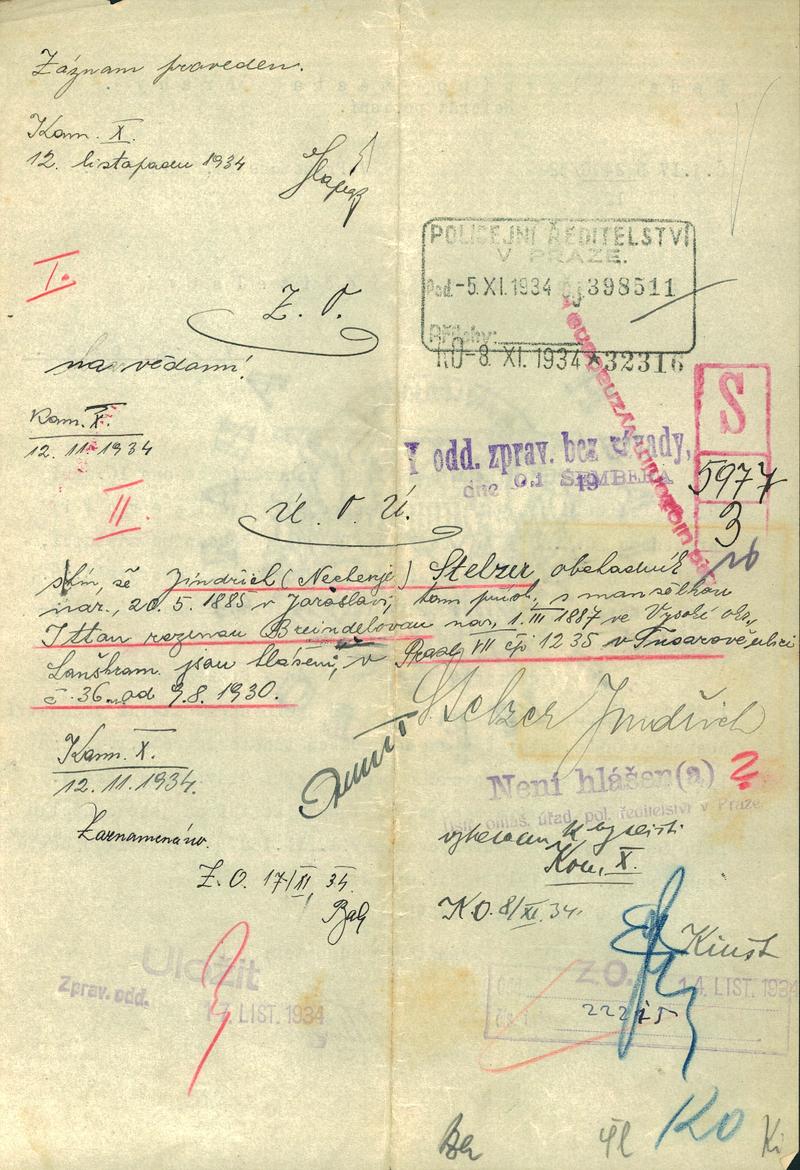 Záznam proveden.
Kom. X.
12. listopadu 1934
I.
Z. O.
na vědomí!
Kom. X.
12. 11. 1934
II
Ú. O. Ú.
s tím, že Jindřich (Nechemje) Stelzer obchodník
nar. 20. 5. 1885 v Jaroslavi, tam přísl., s manželkou
Ittou rozenou Breindelovou nar. 1. III 1887 ve Vysoké okr.
Lanškroun jsou hlášeni v Praze VII čp 1235 v Tusarově ulici
č. 36 od 9.8. 1930.
Kom. X.
12. 11. 1934.
Zaznamenáno.
Z. O. 17/XI, 34.
Uložit
Zprav. odd.
17. LIST. 1934
POLICEJNÍ ŘEDITELSTVÍ
V PRAZE.
Pod. -5. XI. 1934 čj. 398511
Přílohy:
KO-8. XI. 1934 * 32316
S
5977
3
V odd. zprav. bez závady,
dne 19
ŠEMBERA
Stelzer Jindřich
Není hlášen(a) ?
úřad pol. ředitelství v Praze
Kom. X.
K.O. 8/XI. 34.
Z O.
14. LIST. 1934
22215
KO